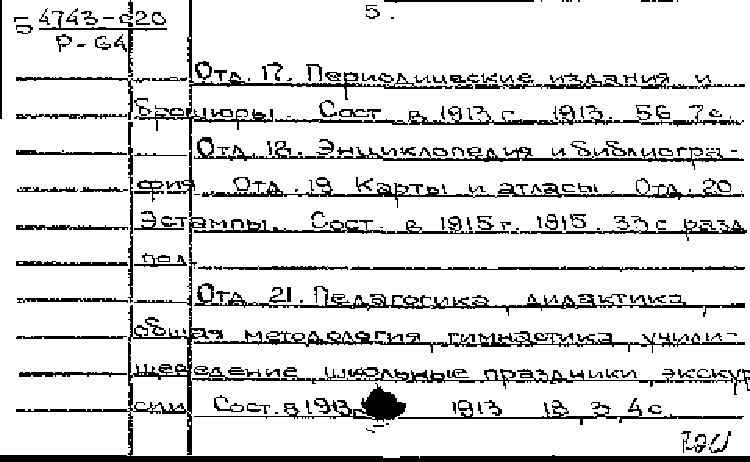 5.
Б 4743-620
Р-64
Отд. 17. Периодические издания и
брошюры. Сост. в 1913 г. 1913. 56, 7 с.
Отд. 18. Энциклопедия и библиогра-
фия. Отд. 19. Карты и атласы. Отд. 20.
Эстампы. Сост. в 1915 г. 1915. 33 с. разд.
паг.
Отд. 21. Педагогика, дидактика,
общая методология, гимнастика, учили-
щеведение, школьные праздники, экскур
сии. Сост. в 1913 1913. 18, 3, 4 с.